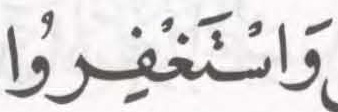 وَاسْتَغْفِرُوا